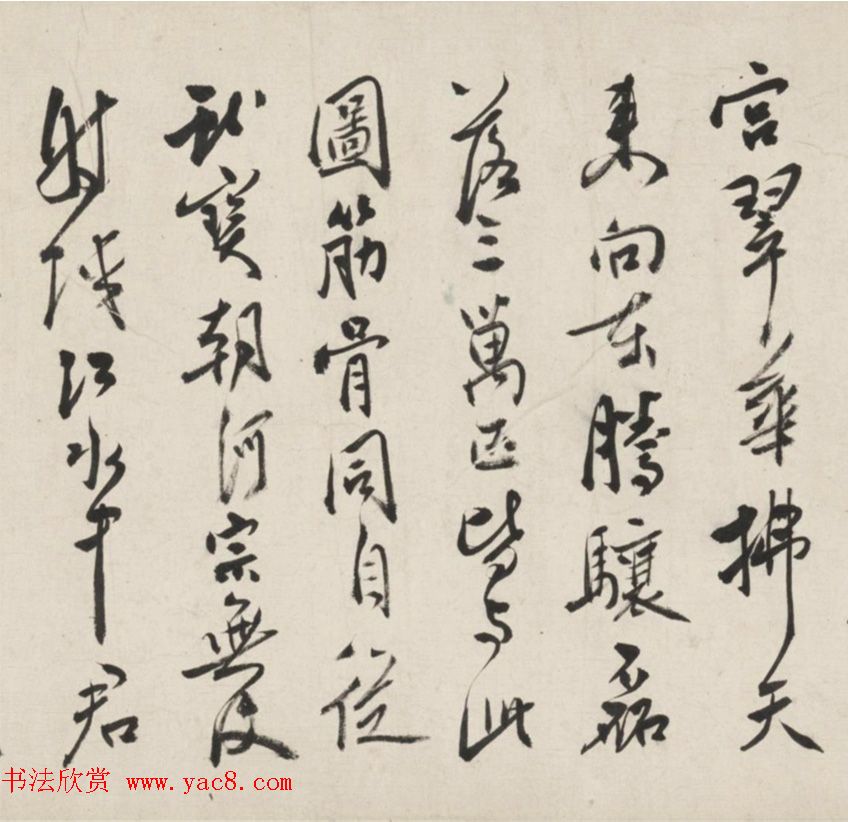 宫翠華拂天
来向東騰驤磊
落三萬匹皆与此
圖筋骨同自從
献寶朝河宗無復
射蛟江水中君
书法欣赏 www.yac8.com